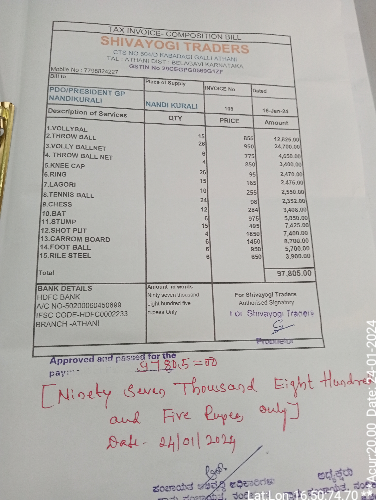 TAX INVOICE- COMPOSITION BILL
SHIVAYOGI TRADERS
TAL : ATHANI DIST : BELAGAVI KARNATAKA
Mobile No : 7795874227
Bill to
Place of Supply
INVOICE No
Dated
PDO/PRESIDENT GP
NANDIKURALI
NANDI KURALI
16-Jan-24
Description of Services QTY PRICE Amount
1.VOLLYBAL
2.THROW BALL 15 855 12,825.00
3.VOLLY BALLNET 26 950 24,700.00
4. THROW BALL NET 6 775 4,650.00
5.KNEE CAP 4 850 3,400.00
6.RING 26 95 2,470.00
7.LAGORI 15 165 2,475.00
8.TENNIS BALL 10 255 2,550.00
9.CHESS 24 98 2,352.00
10.BAT 12 284 3,408.00
11.STUMP 6 975 5,850.00
12.SHOT PUT 15 495 7,425.00
13.CARROM BOARD 4 1850 7,400.00
14.FOOT BALL 6 1450 8,700.00
15.RILE STEEL 6 950 5,700.00
6 650 3,900.00
Total 97,805.00
BANK DETAILS
HDFC BANK
A/C NO-50200060450899
IFSC CODE-HDFC0002233
BRANCH -ATHANI
Amount in words
Ninty seven thousand
eight hundred five
rupees Only
For Shivayogi Traders
Authorised Signatory
For Shivayogi Traders
Proprietor
Approved and passed for the
97805=00
[Ninety Seven Thousand Eight Hundred
and Five Rupees only]
Date- 24/01/2024
Lat Lon:16.50:74.70
Acur:20.00 Date:24-01-2024